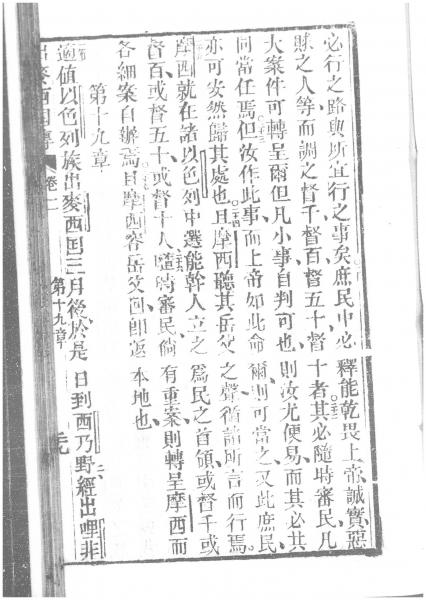 必行之路與所宜行之事矣、庶民中必釋能乾畏上帝、誠實、惡
財之人等而調之督千督百督五十督十者、其必隨時審民、凡
大案件可轉呈爾、但凡小事自判可也、則汝尤便易而其必共
同當任焉、但汝作此事而上帝如此命爾、則可當之、又此庶民、
亦可安然歸其處也、且摩西聽其岳父之聲、循諸所言而行焉、
摩西就在諸以色列中選能幹人立之爲民之首領、或督千或
督百或督五十或督十人、隨時審民、倘有重案則轉呈摩西而
各細案自辦焉、且摩西容岳父回卽返本地也、
第十九章
適値以色列族出麥西囯三月後於是日到西乃野、經出哩非
出麥西囯傳
卷二
第十九章